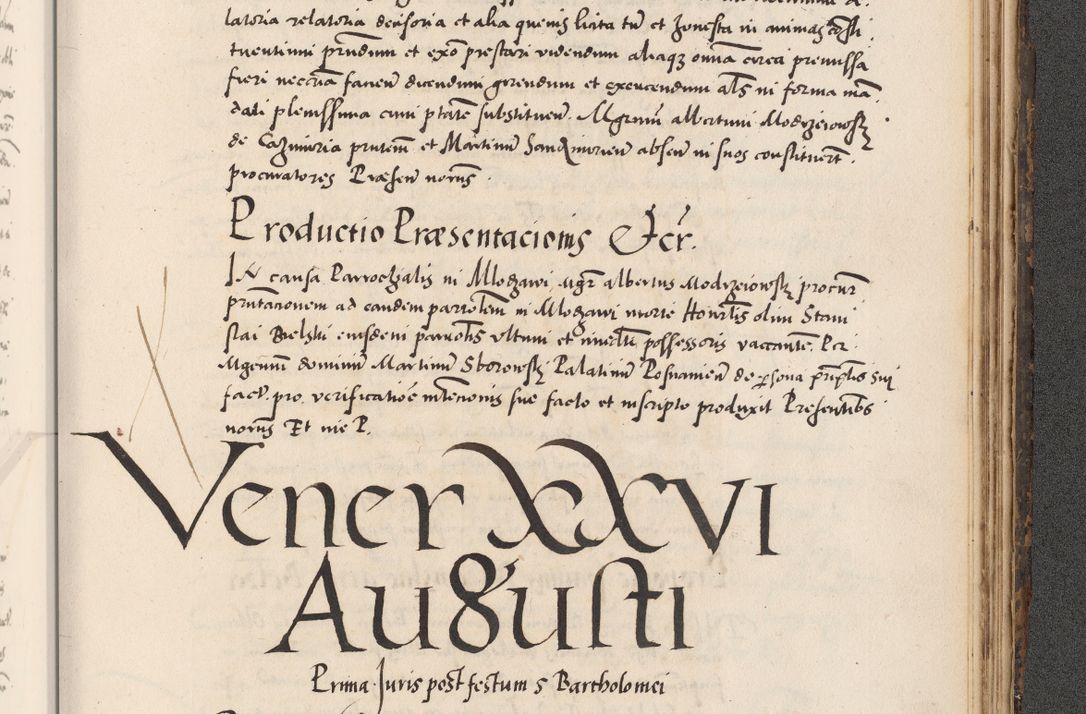 latoria relatoria decisoria et alia quevis licita tn̄ et honesta in animas cōsti
tuentium prn̄dum et exn̄ prestari videndum aliaqꝫ omīa circa premissa
fieri necc̄ria faciend̄ ducendum gerendum et exercendum al̄s in forma mā
dati plenissima cum ptāte substituend̄. Mgrum Albertum Modrzeiowsky
de Cazimiria prn̄tem et Martinū Sandzimirien̄ absen̄ in suos constituert
procuratores Præsen̄ notrijs.
Productio Præsentacionis &cr̄.
IN causa Parrochialis in Mlodzawi Mgr̄ Albertus Modrzeiowsky procur̄
prn̄tationem ad eandem parrochlem in Mlodzawi morte Honr̄bilis olim Stani
slai Bielski eiusdem parrochlis vltimi et immediati possessoris vaccante. Per
Mgcum dominum Martinū Sborowsky Palatinū Posnanien̄ de persona prn̄cipalis sui
fact. pro verificatioē intencionis sue facto et inscripto produxit Presentibus
notrijs Et me P.
Vener XXVI
Augusti
Prima Juris post festum S Bartholomei